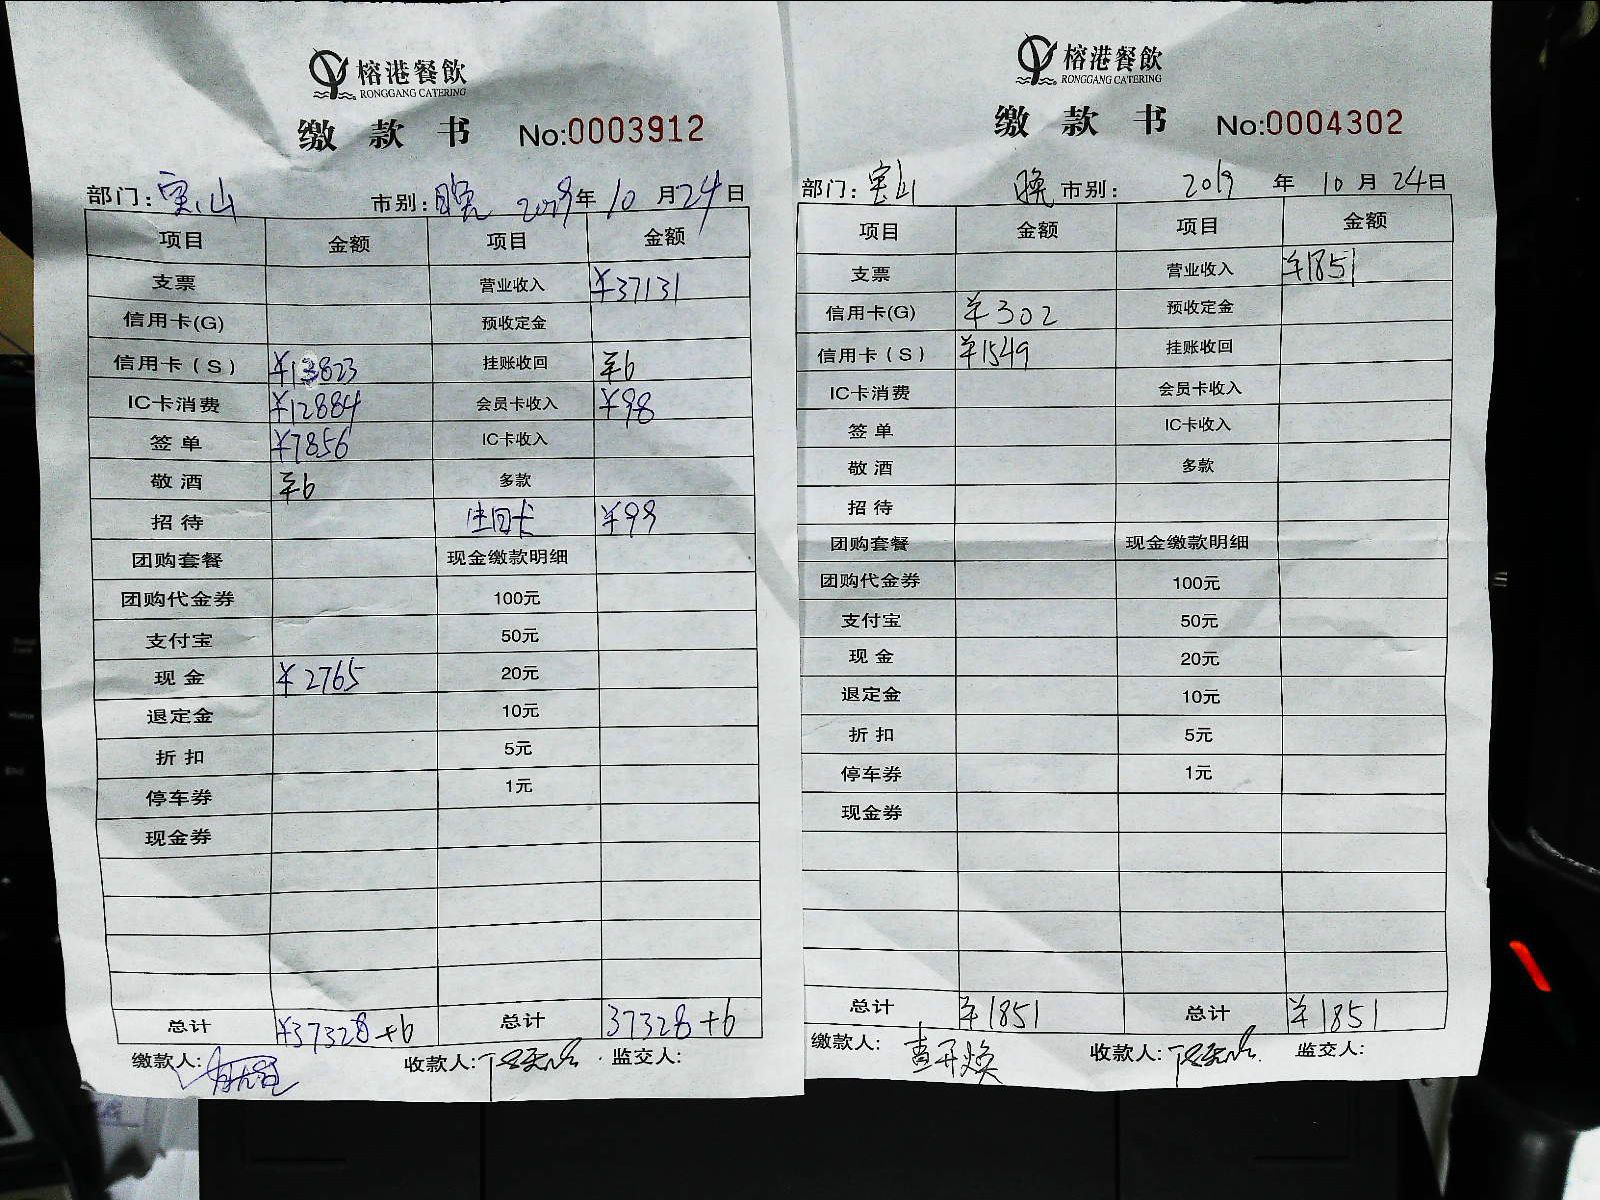 榕港餐飲
RONGGANG CATERING
缴款书 No:0003912
部门:宝山 市别:晚 2019年10月24日
项目 金额 项目 金额
支票 营业收入 ¥37131
信用卡(G) 预收定金
信用卡(S) ¥13823 挂账收回 ¥6
IC卡消费 ¥12884 会员卡收入 ¥98
签单 ¥7856 IC卡收入
敬酒 ¥6 多款
招待 ¥99
团购套餐 现金缴款明细
团购代金券 100元
支付宝 50元
现金 ¥2765 20元
退定金 10元
折扣 5元
停车券 1元
现金券
总计 ¥37328+6 总计 37328+6
缴款人: 收款人: 监交人:
榕港餐飲
RONGGANG CATERING
缴款书 No:0004302
部门:宝山 晚市别: 2019年10月24日
项目 金额 项目 金额
支票 营业收入 ¥1851
信用卡(G) ¥302 预收定金
信用卡(S) ¥1549 挂账收回
IC卡消费 会员卡收入
签单 IC卡收入
敬酒 多款
招待
团购套餐 现金缴款明细
团购代金券 100元
支付宝 50元
现金 20元
退定金 10元
折扣 5元
停车券 1元
现金券
总计 ¥1851 总计 ¥1851
缴款人: 收款人: 监交人: